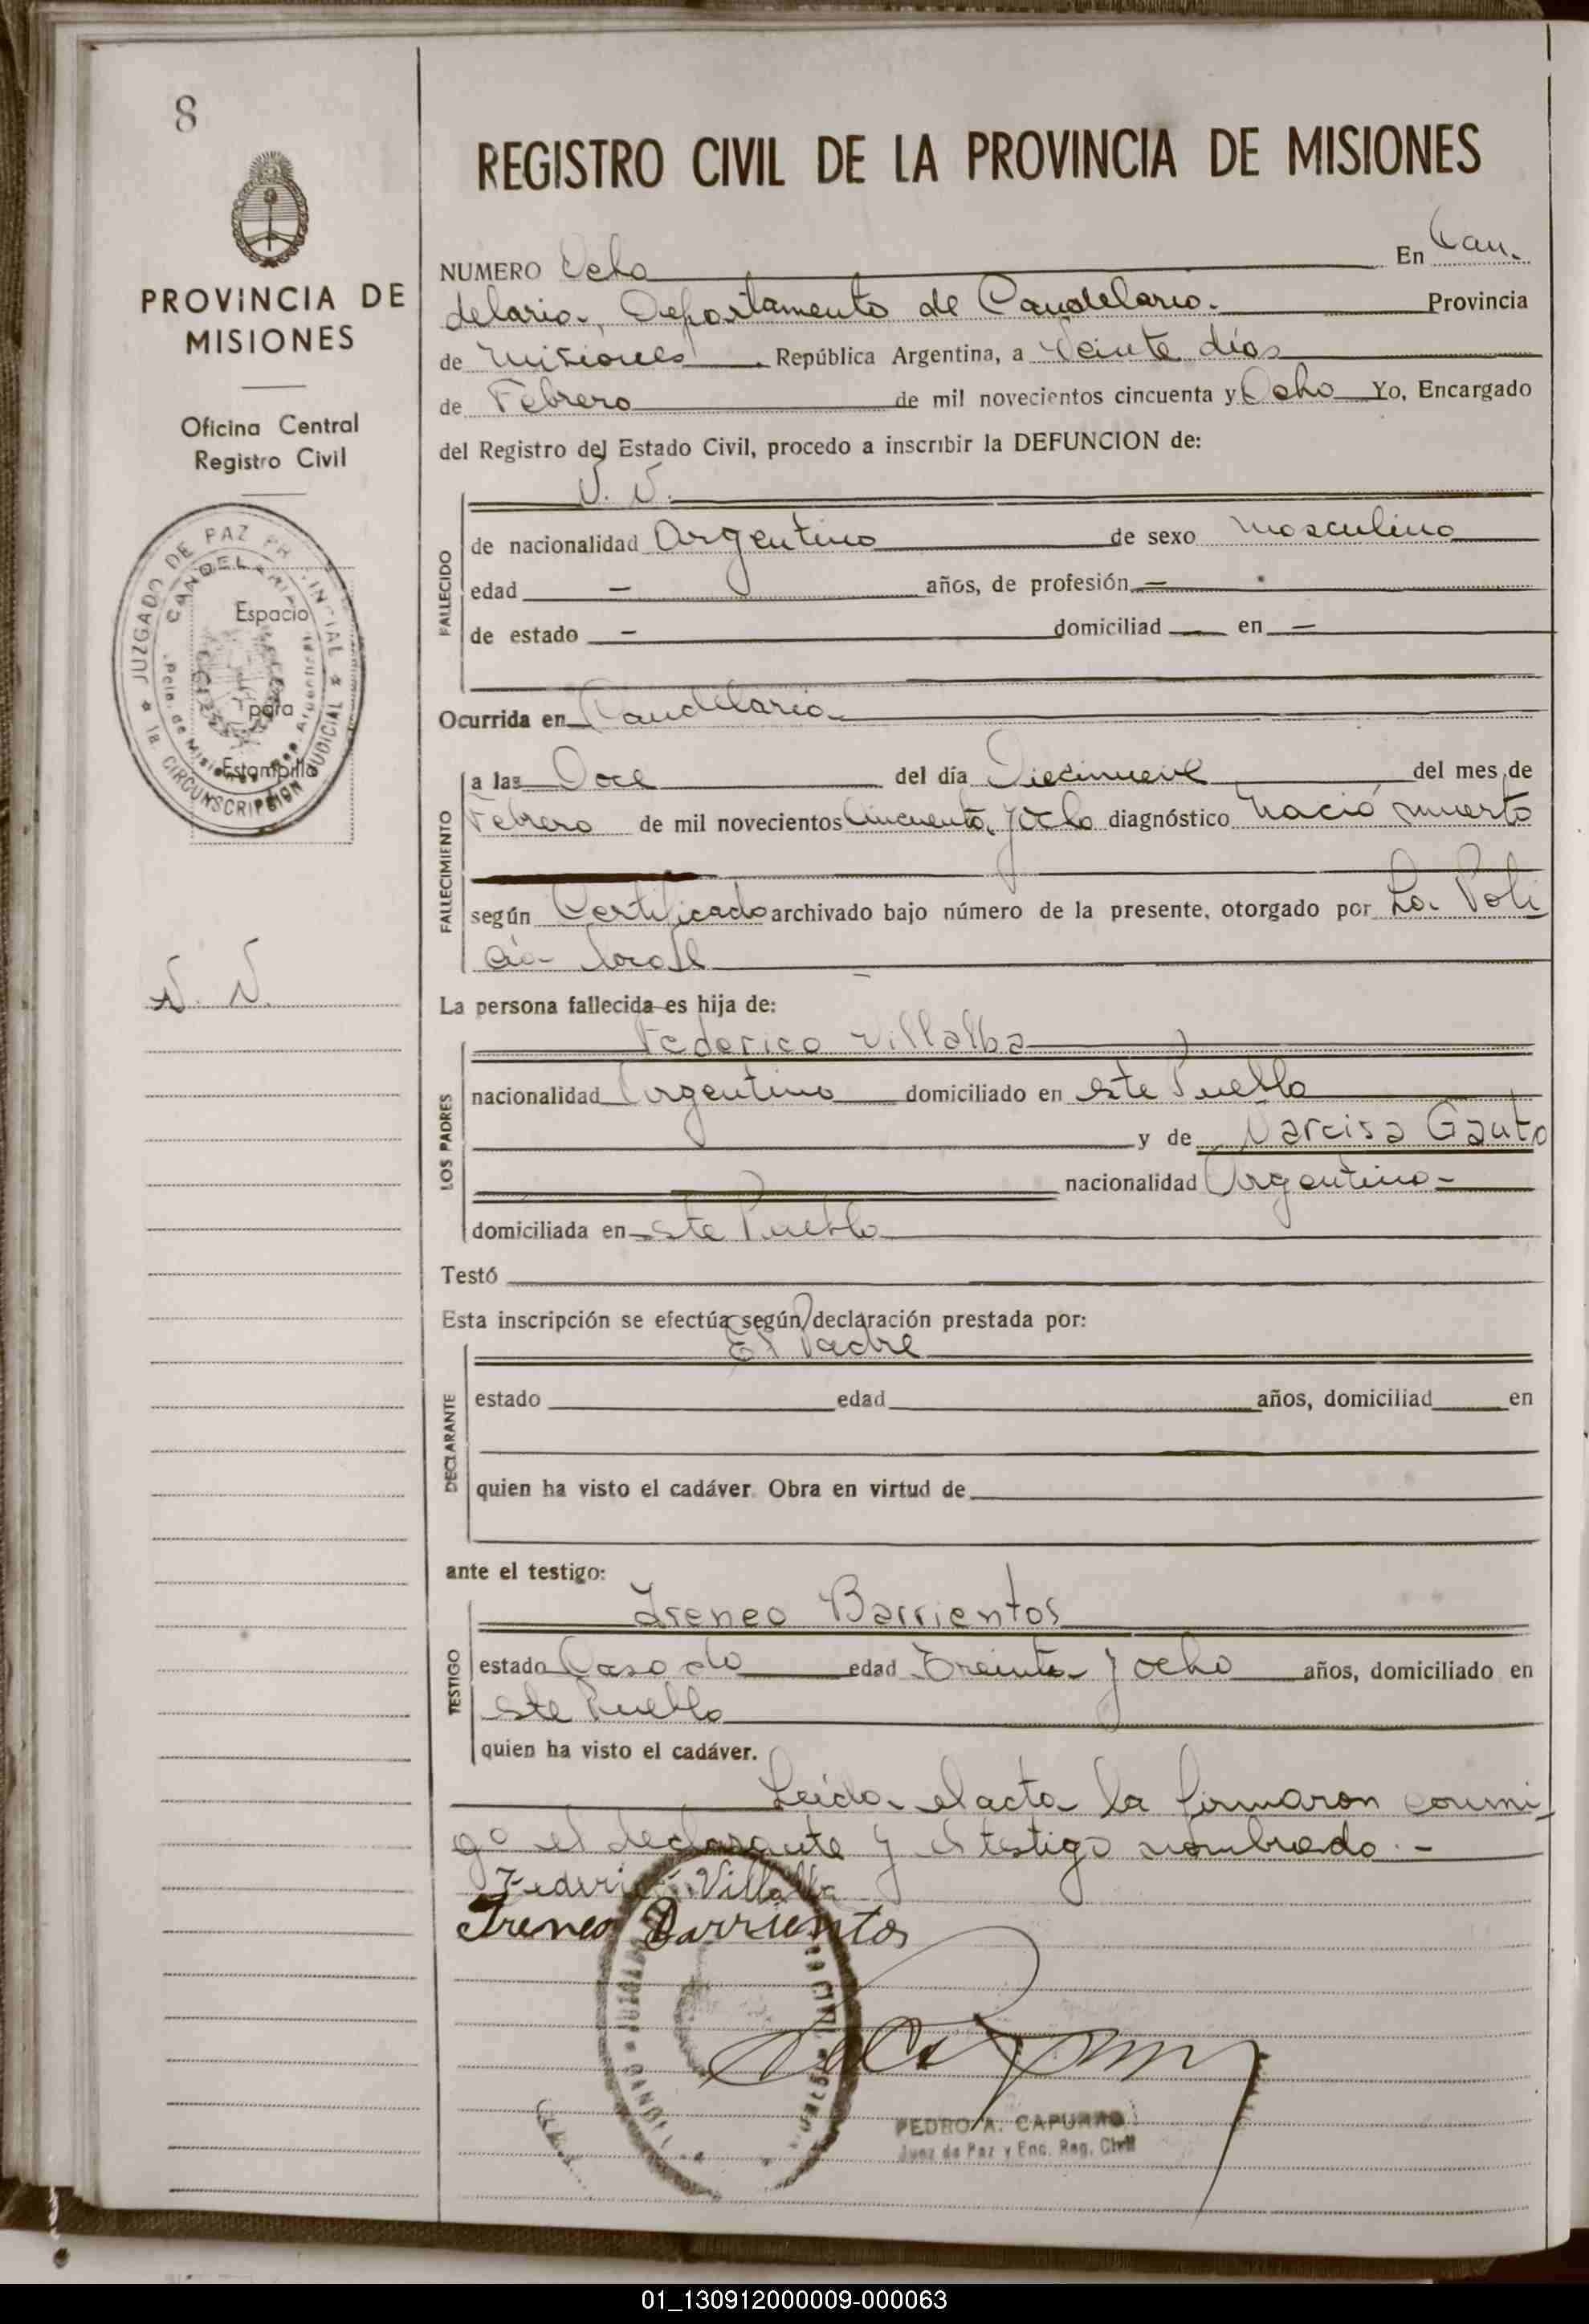 8
PROVINCIA DE
MISIONES
Oficina Central
Registro Civil
JUZGADO DE PAZ PROVINCIAL
CANDELARIA
1a. CIRCUNSCRIPCION JUDICIAL
Pcia. de Misiones Rep. Argentina
Espacio
para
Estampilla
N. N.
REGISTRO CIVIL DE LA PROVINCIA DE MISIONES
NUMERO Ocho En Can-
delaria, Departamento de Candelaria. Provincia
de Misiones República Argentina, a Veinte días
de Febrero de mil novecientos cincuenta y Ocho Yo, Encargado
del Registro del Estado Civil, procedo a inscribir la DEFUNCION de:
N. N.
FALLECIDO
de nacionalidad Argentino de sexo masculino
edad — años, de profesión —
de estado — domiciliad — en —
Ocurrida en Candelaria
FALLECIMIENTO
a las Doce del día Diecinueve del mes de
Febrero de mil novecientos Cincuenta y ocho diagnóstico Nació muerto
según Certificado archivado bajo número de la presente, otorgado por La Poli
cía local
La persona fallecida es hija de:
LOS PADRES
Federico Villalba
nacionalidad Argentino domiciliado en este Pueblo
y de Narcisa Gauto
nacionalidad Argentina -
domiciliada en este Pueblo
Testó
Esta inscripción se efectúa según declaración prestada por:
DECLARANTE
El Padre
estado edad años, domiciliad en
quien ha visto el cadáver. Obra en virtud de
ante el testigo:
TESTIGO
Ireneo Barrientos
estado Casado edad Treinta y ocho años, domiciliado en
este Pueblo
quien ha visto el cadáver.
Leída el acta la firmaron conmi-
go el declarante y el testigo nombrado. -
Federico Villalba
Ireneo Barrientos
PEDRO A. CAPURRO
Juez de Paz y Enc. Reg. Civil
01_130912000009-000063